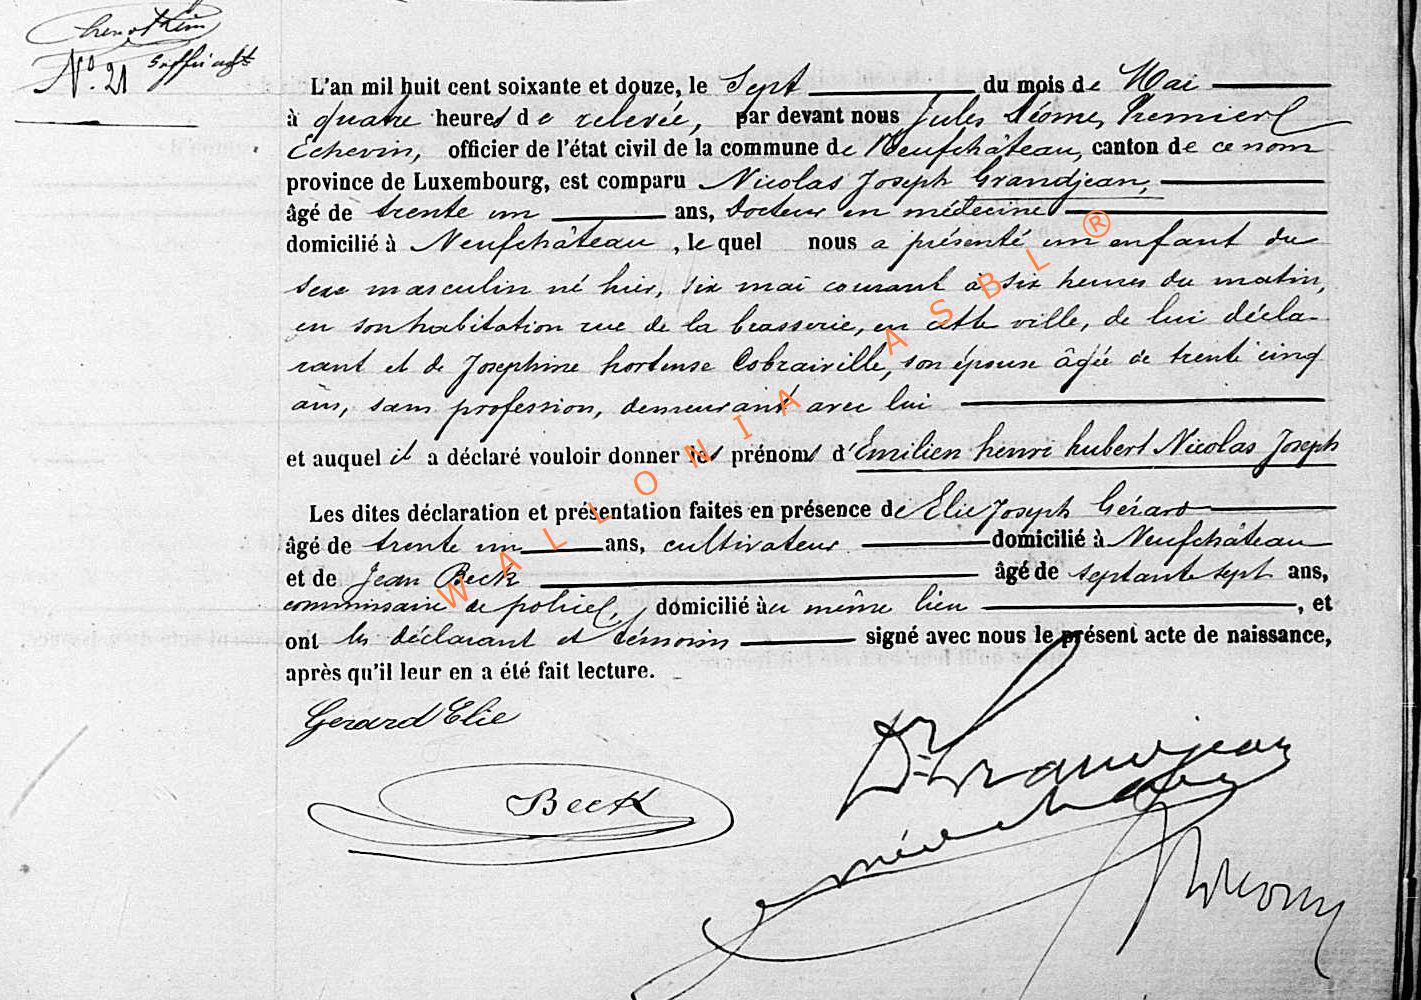 N° 21
L'an mil huit cent soixante et douze, le Sept du mois de Mai
à quatre heures de relevée, par devant nous Jules Premier
Echevin, officier de l'état civil de la commune de Neufchâteau, canton de ce nom
province de Luxembourg, est comparu Nicolas Joseph Grandjean,
âgé de trente un ans, Docteur en médecine
domicilié à Neufchâteau, lequel nous a présenté un enfant du
sexe masculin né hier, six mai courant à six heures du matin,
en son habitation rue de la brasserie, en cette ville, de lui décla-
rant et de Josephine hortense Cobraiville, son épouse âgée de trente cinq
ans, sans profession, demeurant avec lui
et auquel il a déclaré vouloir donner les prénoms d'Emilien henri hubert Nicolas Joseph
Les dites déclaration et présentation faites en présence de Elie Joseph Gérard
âgé de trente un ans, cultivateur domicilié à Neufchâteau
et de Jean Beck âgé de septante sept ans,
commissaire de police, domicilié au même lieu , et
ont les déclarant et témoins signé avec nous le présent acte de naissance,
après qu'il leur en a été fait lecture.
Gerard Elie
Dr Grandjean
Beck
WALLONIA ASBL ®